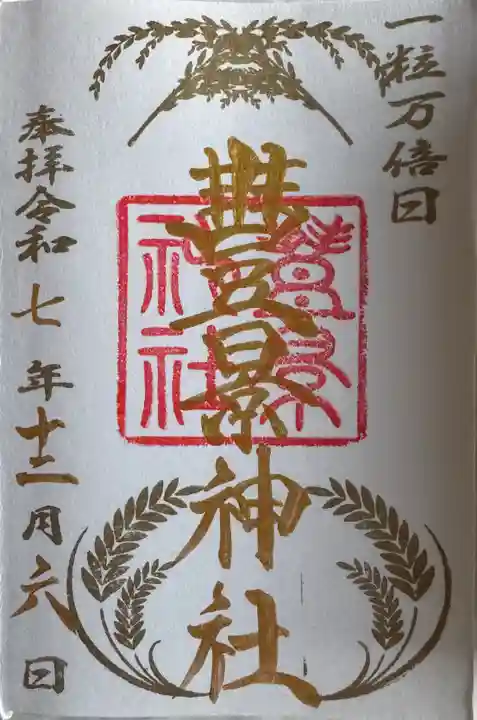 一粒万倍日
豊景神社
豊景
神社
奉拝令和七年十二月六日